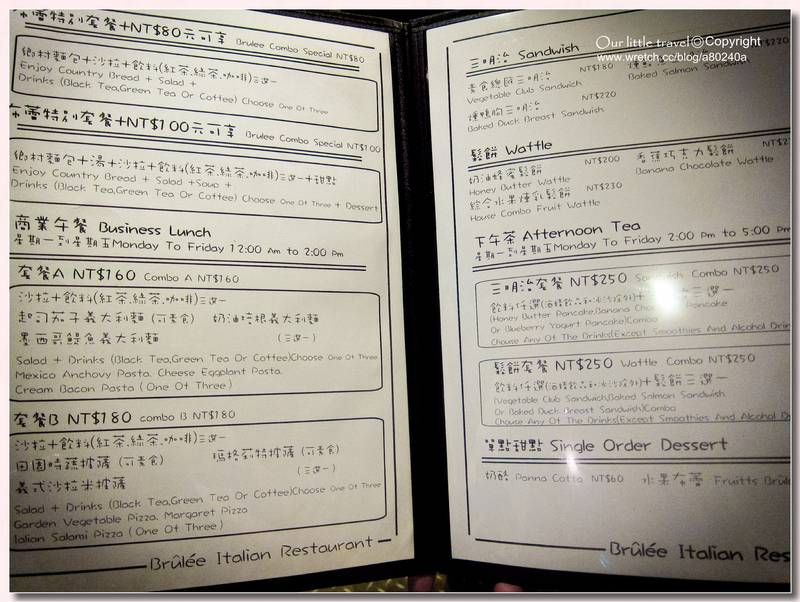 布蕾特別套餐+NT$80元可享 Brulee Combo Special NT$80
鄉村麵包+沙拉+飲料(紅茶.綠茶.咖啡)三選一
Enjoy Country Bread + Salad +
Drinks (Black Tea,Green Tea Or Coffee) Choose One Of Three
布蕾特別套餐+NT$100元可享 Brulee Combo Special NT$100
鄉村麵包+湯+沙拉+飲料(紅茶.綠茶.咖啡)三選一+甜點
Enjoy Country Bread + Salad +Soup +
Drinks (Black Tea,Green Tea Or Coffee) Choose One Of Three + Dessert
商業午餐 Business Lunch
星期一到星期五Monday To Friday 12:00 Am to 2:00 Pm
套餐A NT$160 Combo A NT$160
沙拉+飲料(紅茶.綠茶.咖啡)三選一
起司茄子義大利麵(可素食) 奶油培根義大利麵
墨西哥鯷魚義大利麵 (三選一)
Salad + Drinks (Black Tea,Green Tea Or Coffee)Choose One Of Three
Mexico Anchovy Pasta. Cheese Eggplant Pasta.
Cream Bacon Pasta ( One Of Three )
套餐B NT$180 combo B NT$180
沙拉+飲料(紅茶.綠茶.咖啡)三選一
田園時蔬披薩(可素食) 瑪格莉特披薩(可素食)
義式沙拉米披薩 (三選一)
Salad + Drinks (Black Tea,Green Tea Or Coffee)Choose One Of Three
Garden Vegetable Pizza. Margaret Pizza
Ialian Salami Pizza ( One Of Three )
Brûlée Italian Restaurant
Our little travel©Copyright
www.wretch.cc/blog/a80240a
三明治 Sandwish
素食總匯三明治 NT$180
Vegetable Club Sandwich
Baked Salmon Sandwich NT$220
燻鴨胸三明治 NT$220
Baked Duck Breast Sandwich
鬆餅 Wattle
奶油蜂蜜鬆餅 NT$200 香蕉巧克力鬆餅
Honey Butter Wattle Banana Chocolate Wattle
綜合水果煉乳鬆餅 NT$230
House Combo Fruit Wattle
下午茶 Afternoon Tea
星期一到星期五Monday To Friday 2:00 Pm to 5:00 Pm
三明治套餐 NT$250 Sandwish Combo NT$250
飲料任選(酒精飲品和冰沙除外)+ 三選一
(Honey Butter Pancake,Banana Pancake
Or Blueberry Yogurt Pancake)Combo
Choose Any Of The Drinks(Except Smoothies And Alcohol
鬆餅套餐 NT$250 Wattle Combo NT$250
飲料任選(酒精飲品和冰沙除外)+鬆餅三選一
(Vegetable Club Sandwich,Baked Salmon Sandwish
Or Baked Duck Breast Sandwish)Combo
Chouse Any Of The Drinks(Except Smoothies And Alcohol
單點甜點 Single Order Dessert
奶酪 Panna Cotta NT$60 水果布蕾 Fruitts
Brûlée Italian